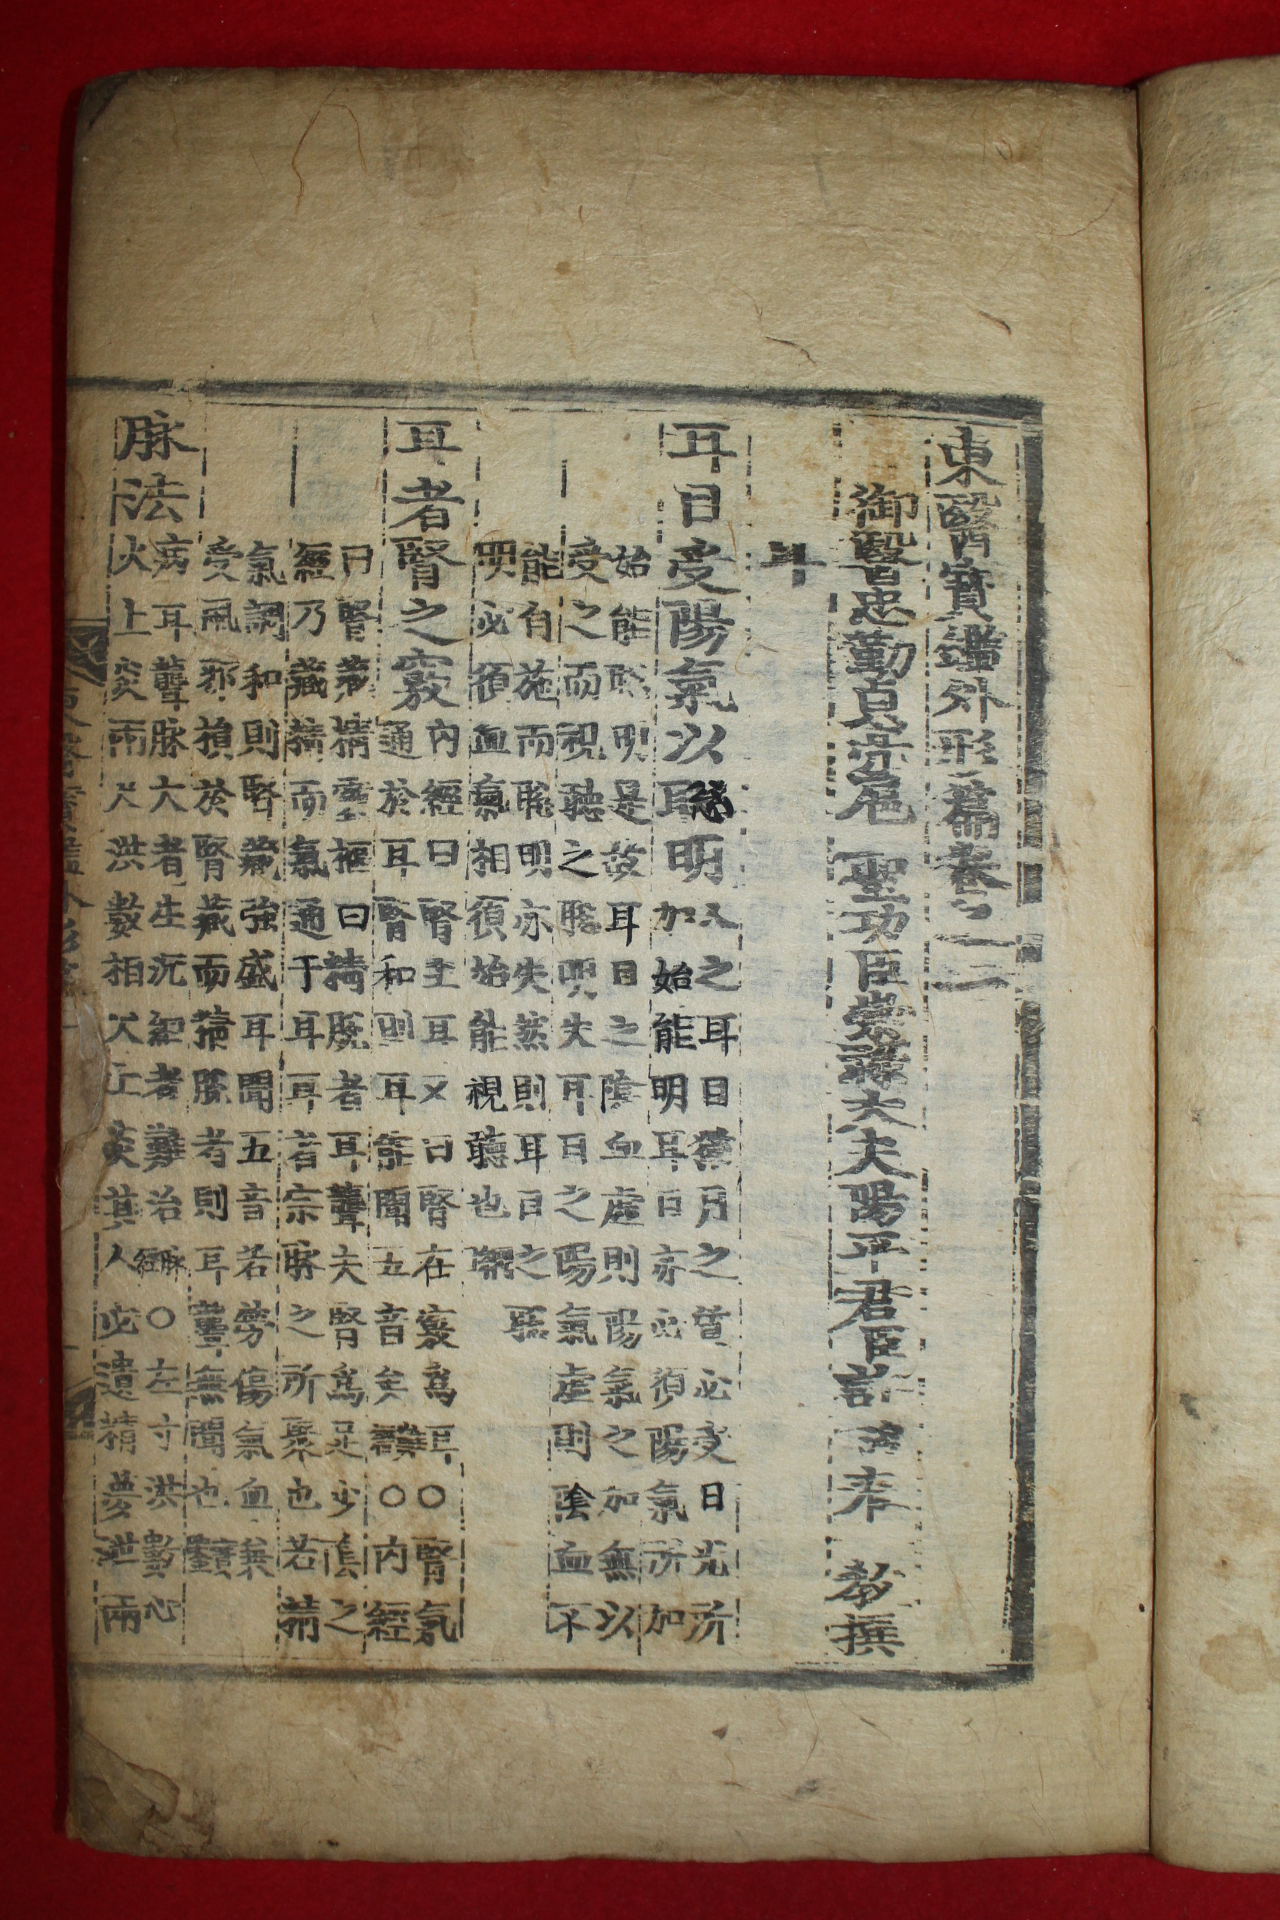 東醫寶鑑外形篇卷之二
御醫忠勤貞亮扈 聖功臣崇祿大夫陽平君臣許浚奉 敎撰
耳
耳目受陽氣以聰明人之耳目猶月之質必受日光所
加始能明耳目亦必須陽氣所加
始能聰明是故耳目之陰血虛則陽氣之加無以
受之而視聽之聰明失耳目之陽氣虛則陰血不
能自施而聰明亦失然則耳目之聰
明必須血氣相須始能視聽也
耳者腎之竅內經曰腎主耳又曰腎在竅爲耳○腎氣
通於耳腎和則耳能聞五音矣難經○內經
曰腎藏精靈樞曰精脫者耳聾夫腎爲足少陰之
經乃藏精而氣通于耳耳者宗脉之所聚也若精
氣調和則腎藏強盛耳聞五音若勞傷氣血兼
受風邪損於腎藏而精脫者則耳聾無聞也
脉法病耳聾脉大者生沉細者難治脉經○左寸洪數心
火上炎兩尺洪數相火上炎其人必遺精夢泄兩
東醫寶鑑外形篇二